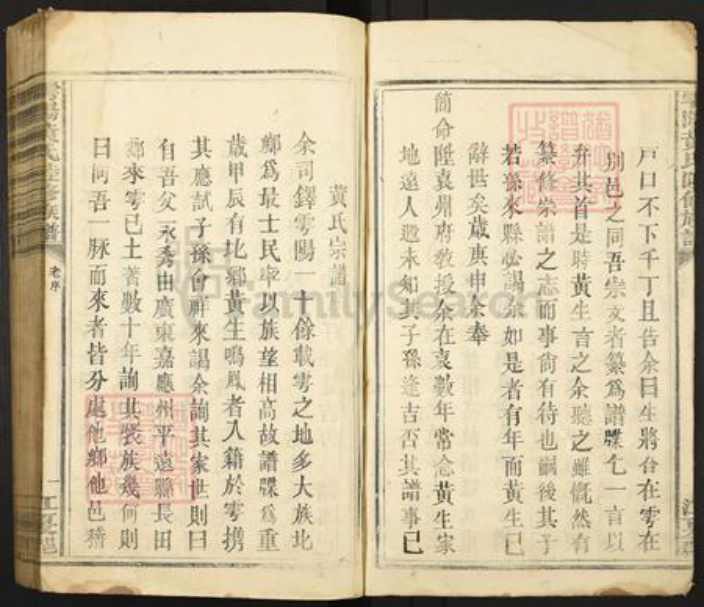 戶口不下千丁且告余曰生將合在雩在
別邑之同吾宗文者纂爲譜牒乞一言以
弁其首是時黃生言之余聽之雖慨然有
纂修宗譜之志而事尚有待也嗣後其子
若孫來縣必謁余如是者有年而黃生已
辭世矣歲庚申余奉
簡命陞袁州府教授余在袁數年常念黃生家
地遠人遐未知其子孫逢吉否其譜事已
黃氏宗譜
余司鐸雩陽一十餘載雩之地多大族北
鄉爲最士民率以族望相高故譜牒爲重
歲甲辰有北鄉黃生鳴鳳者入籍於雩携
其應試子孫會群來謁余詢其家世則曰
自吾父永秀由廣東嘉應州平遠縣長田
鄉來雩已土著數十年詢其聚族幾何則
曰同吾一脉而來者皆分處他鄉他邑稽
老序
一
FamilySearch